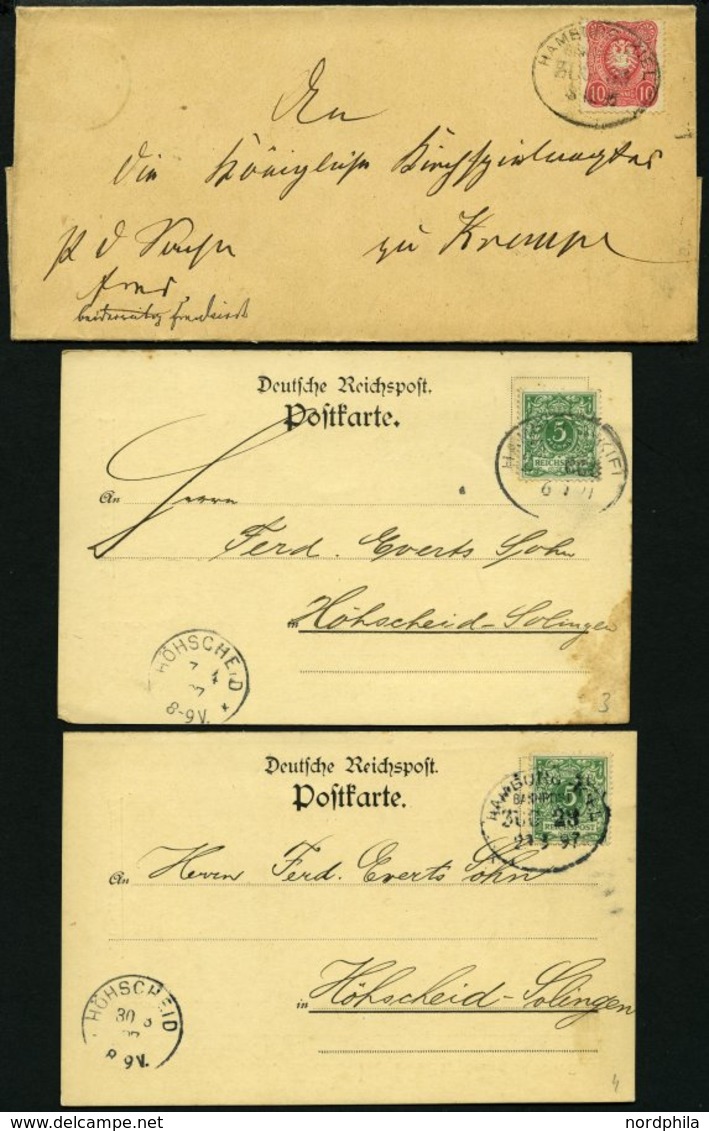 HAMBURG KIEL
10 10
An
die Königliche Kirchspielvogtei
zu Krempe
Deutsche Reichspost.
Postkarte.
5
REICHSPOST
An Herrn
Ferd. Everts Sohn
in Höhscheid-Solingen
HÖHSCHEID
7 1
8-9V.
3
Deutsche Reichspost.
Postkarte.
HAMBURG
BAHNPOST
5
ZUG 23
REICHSPOST
29 3 97
An Herrn Ferd. Everts Sohn
in Höhscheid-Solingen
HÖHSCHEID
30 3
9V.
4
nordphila